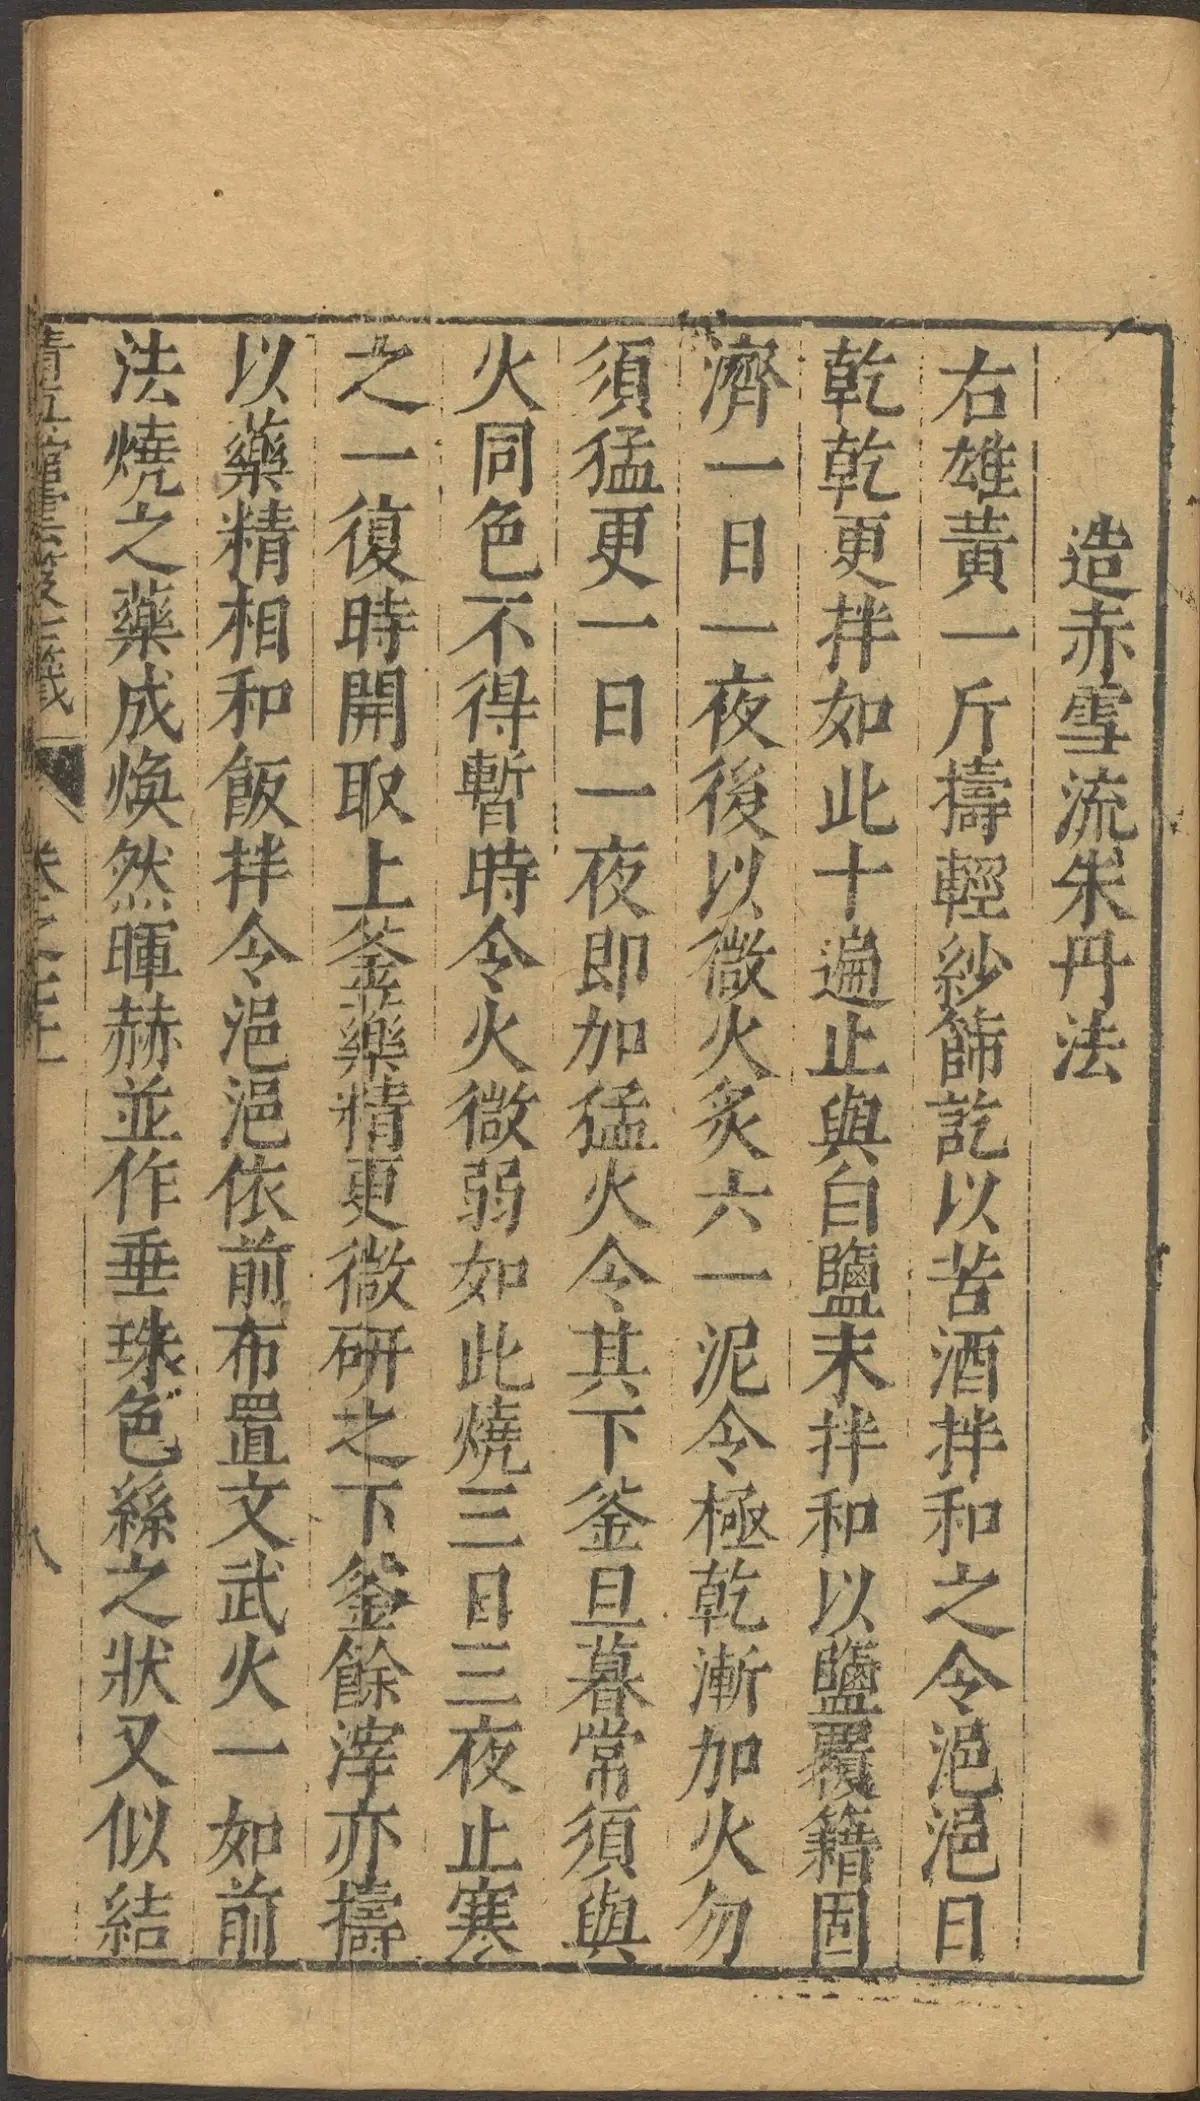 造赤雪流朱丹法
右雄黃一斤擣輕紗篩訖以苦酒拌和之令浥浥日
乾乾更拌如此十遍止與白鹽末拌和以鹽覆籍固
濟一日一夜後以微火炙六一泥令極乾漸加火勿
須猛更一日一夜即加猛火令其下釜旦暮常須與
火同色不得暫時令火微弱如此燒三日三夜止寒
之一復時開取上釜藥精更微研之下釜餘滓亦擣
以藥精相和飯拌令浥浥依前布置文武火一如前
法燒之藥成煥然暉赫並作垂珠色絲之狀又似結
清真館雲笈七籤 卷之七十一 八